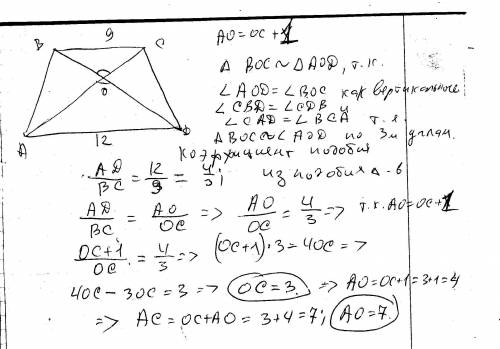 9
B C
O
A D
12
AO = OC + 1
Δ BOC ~ Δ AOD, т.к.
∠AOD = ∠BOC как вертикальные
∠CBD = ∠CDB и
∠CAD = ∠BCA т.е.
Δ BOC ~ ∠ AOD по 3м углам.
Коэффициент подобия
AD/BC = 12/9 = 4/3; из подобия Δ-в
AD/BC = AO/OC => AO/OC = 4/3 => т.к. AO = OC + 1
OC+1/OC = 4/3 => (OC+1)·3 = 4OC =>
4OC - 3OC = 3 => OC = 3. => AO = OC+1 = 3+1 = 4
=> AC = OC + AO = 3 + 4 = 7; AO = 7.